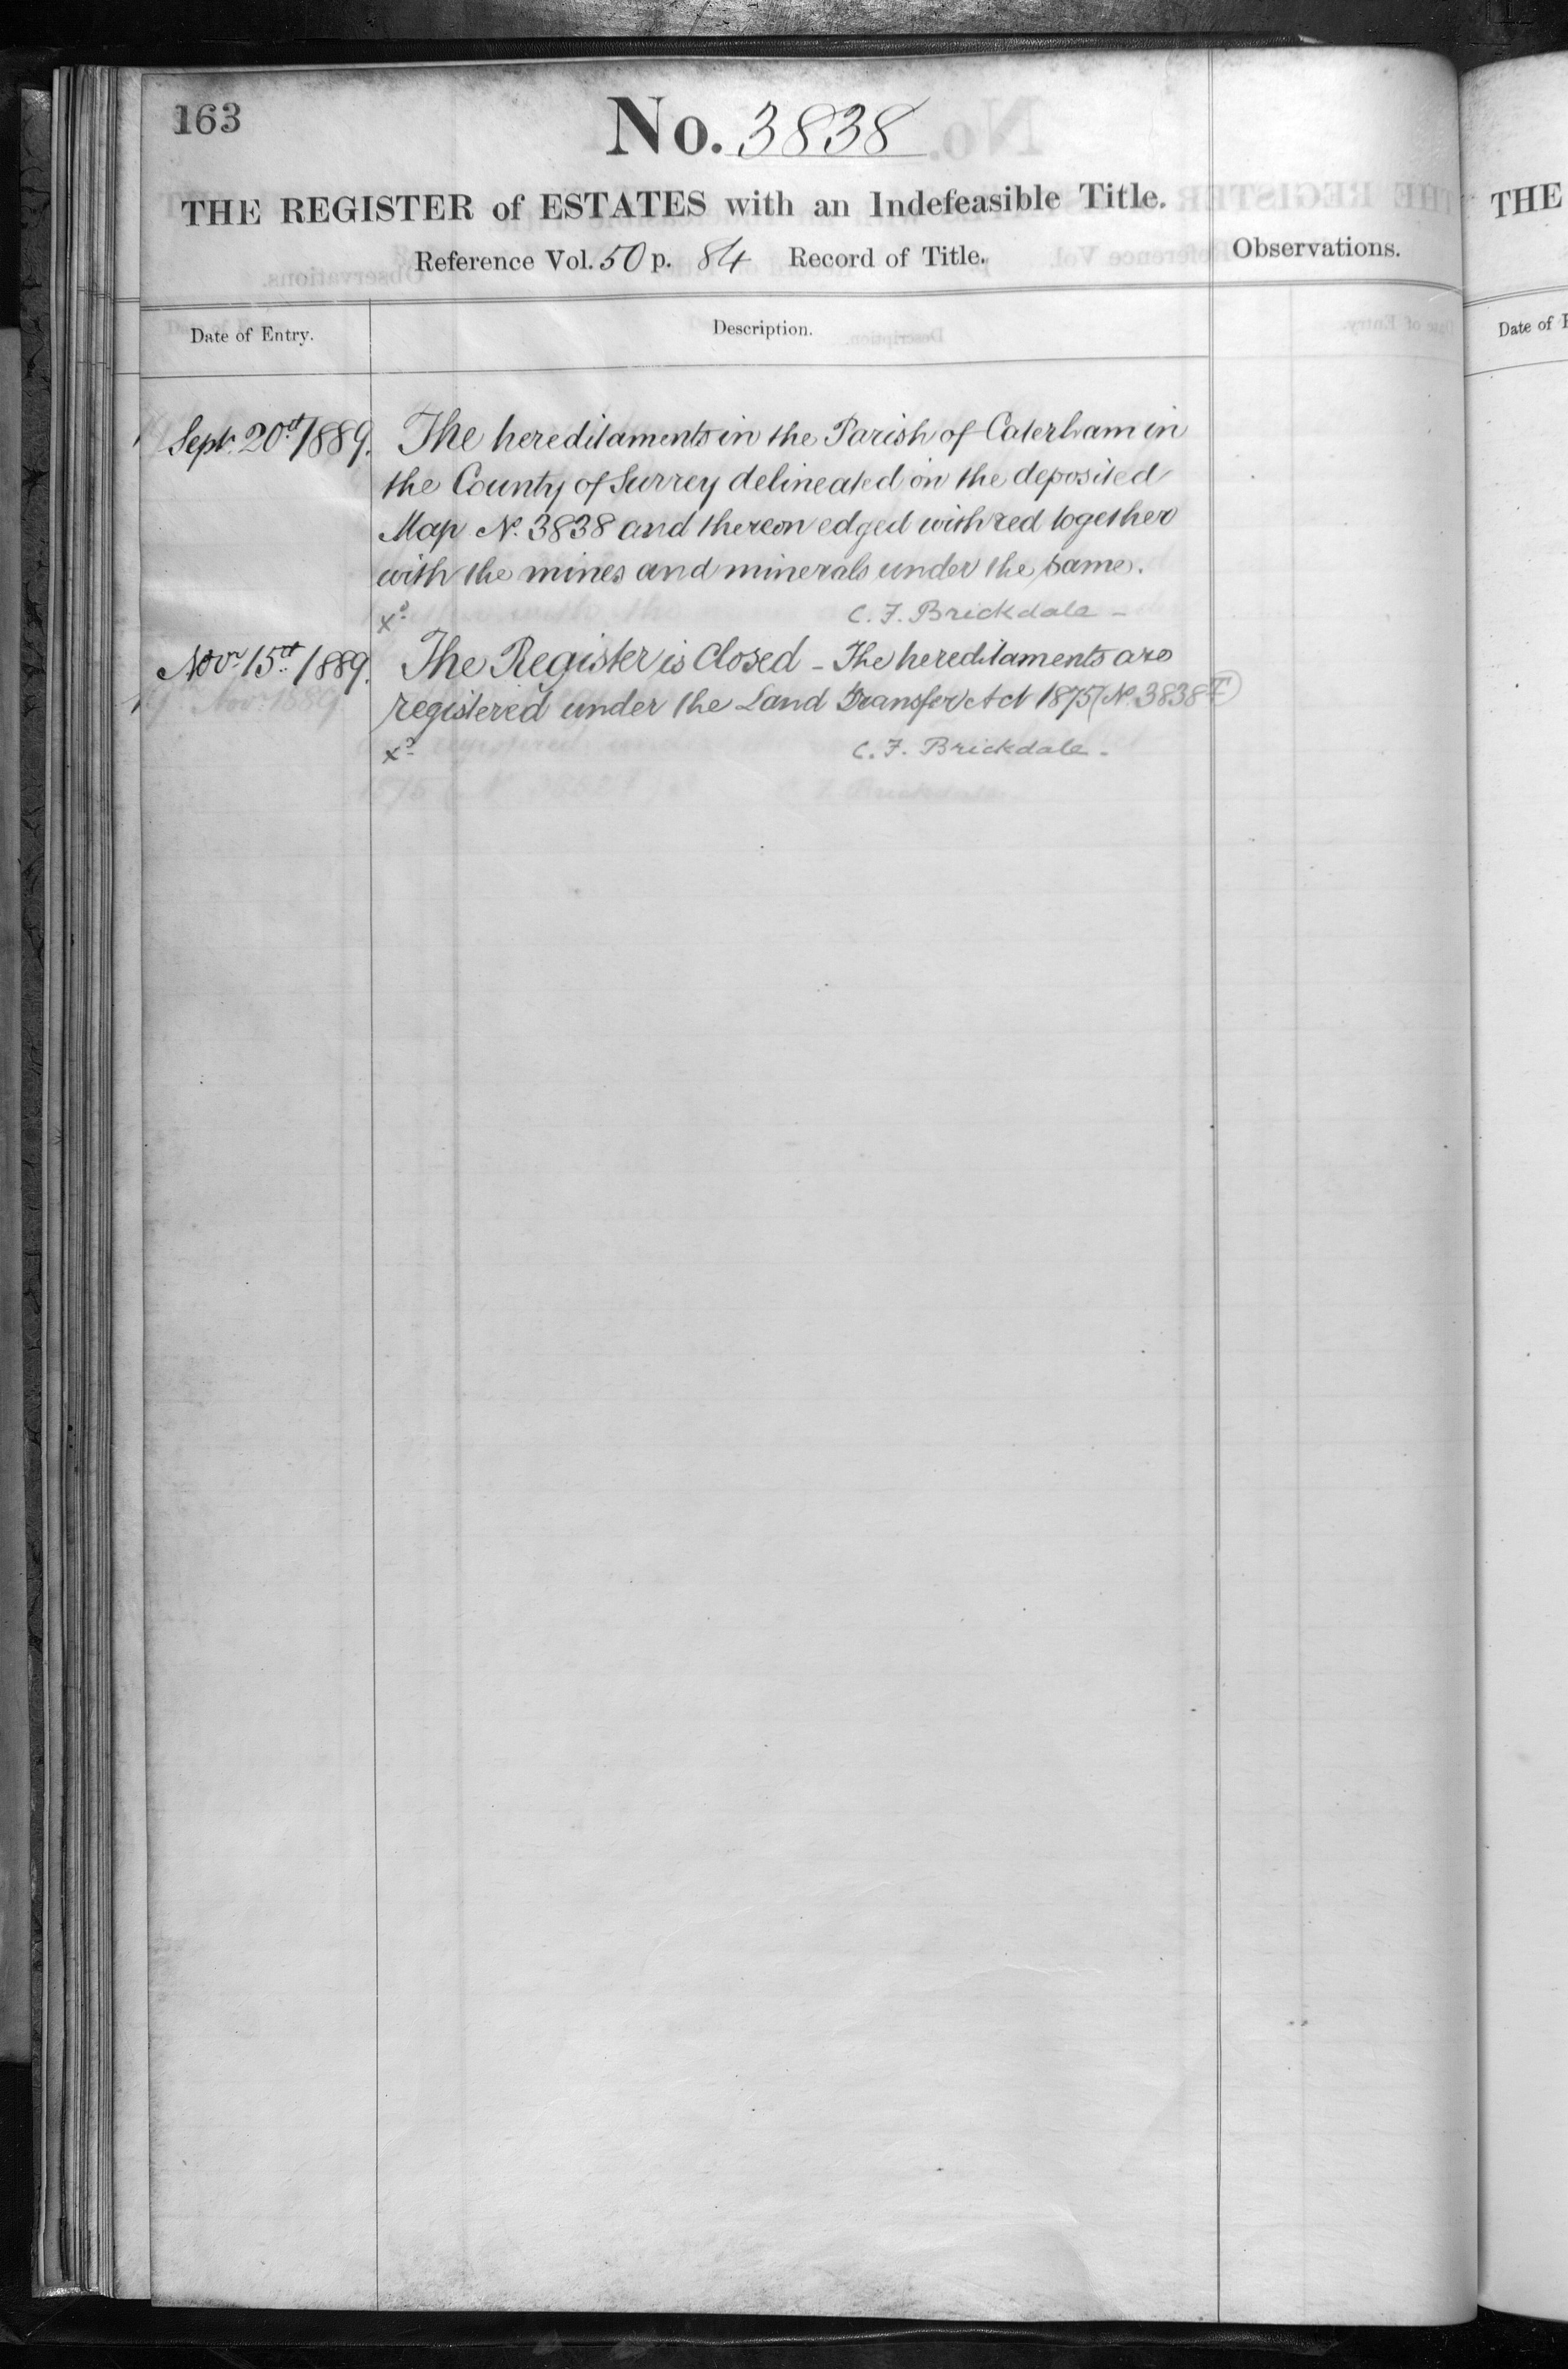 163
No. 3838
THE REGISTER of ESTATES with an Indefeasible Title.
Reference Vol. 50 p. 84 Record of Title.
Observations.
Date of Entry.
Description.
Sept. 20th 1889. The hereditaments in the Parish of Caterham in
the County of Surrey delineated on the deposited
Map No. 3838 and thereon edged with red together
with the mines and minerals under the same.
C. F. Brickdale -
Novr. 15th 1889. The Register is Closed - The hereditaments are
registered under the Land Transfer Act 1875 (No. 3838 T)
C. F. Brickdale -
THE
Date of